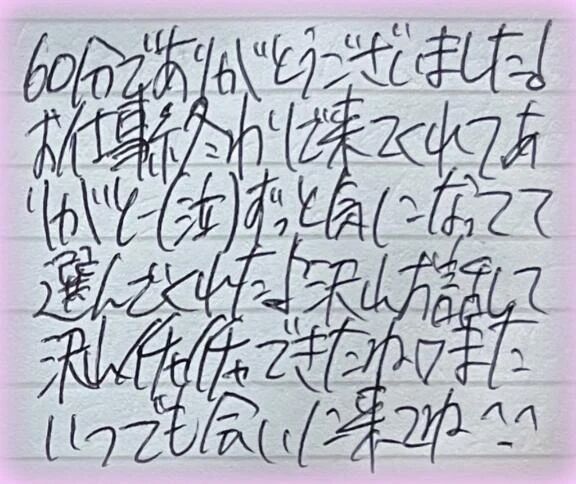 60分でありがとうございました!
お仕事終わりで来てくれてあ
りがとー(泣)ずっと気になってて
選んでくれたよ沢山お話して
沢山イチャイチャできたね♡また
いつでも会いに来てね^^